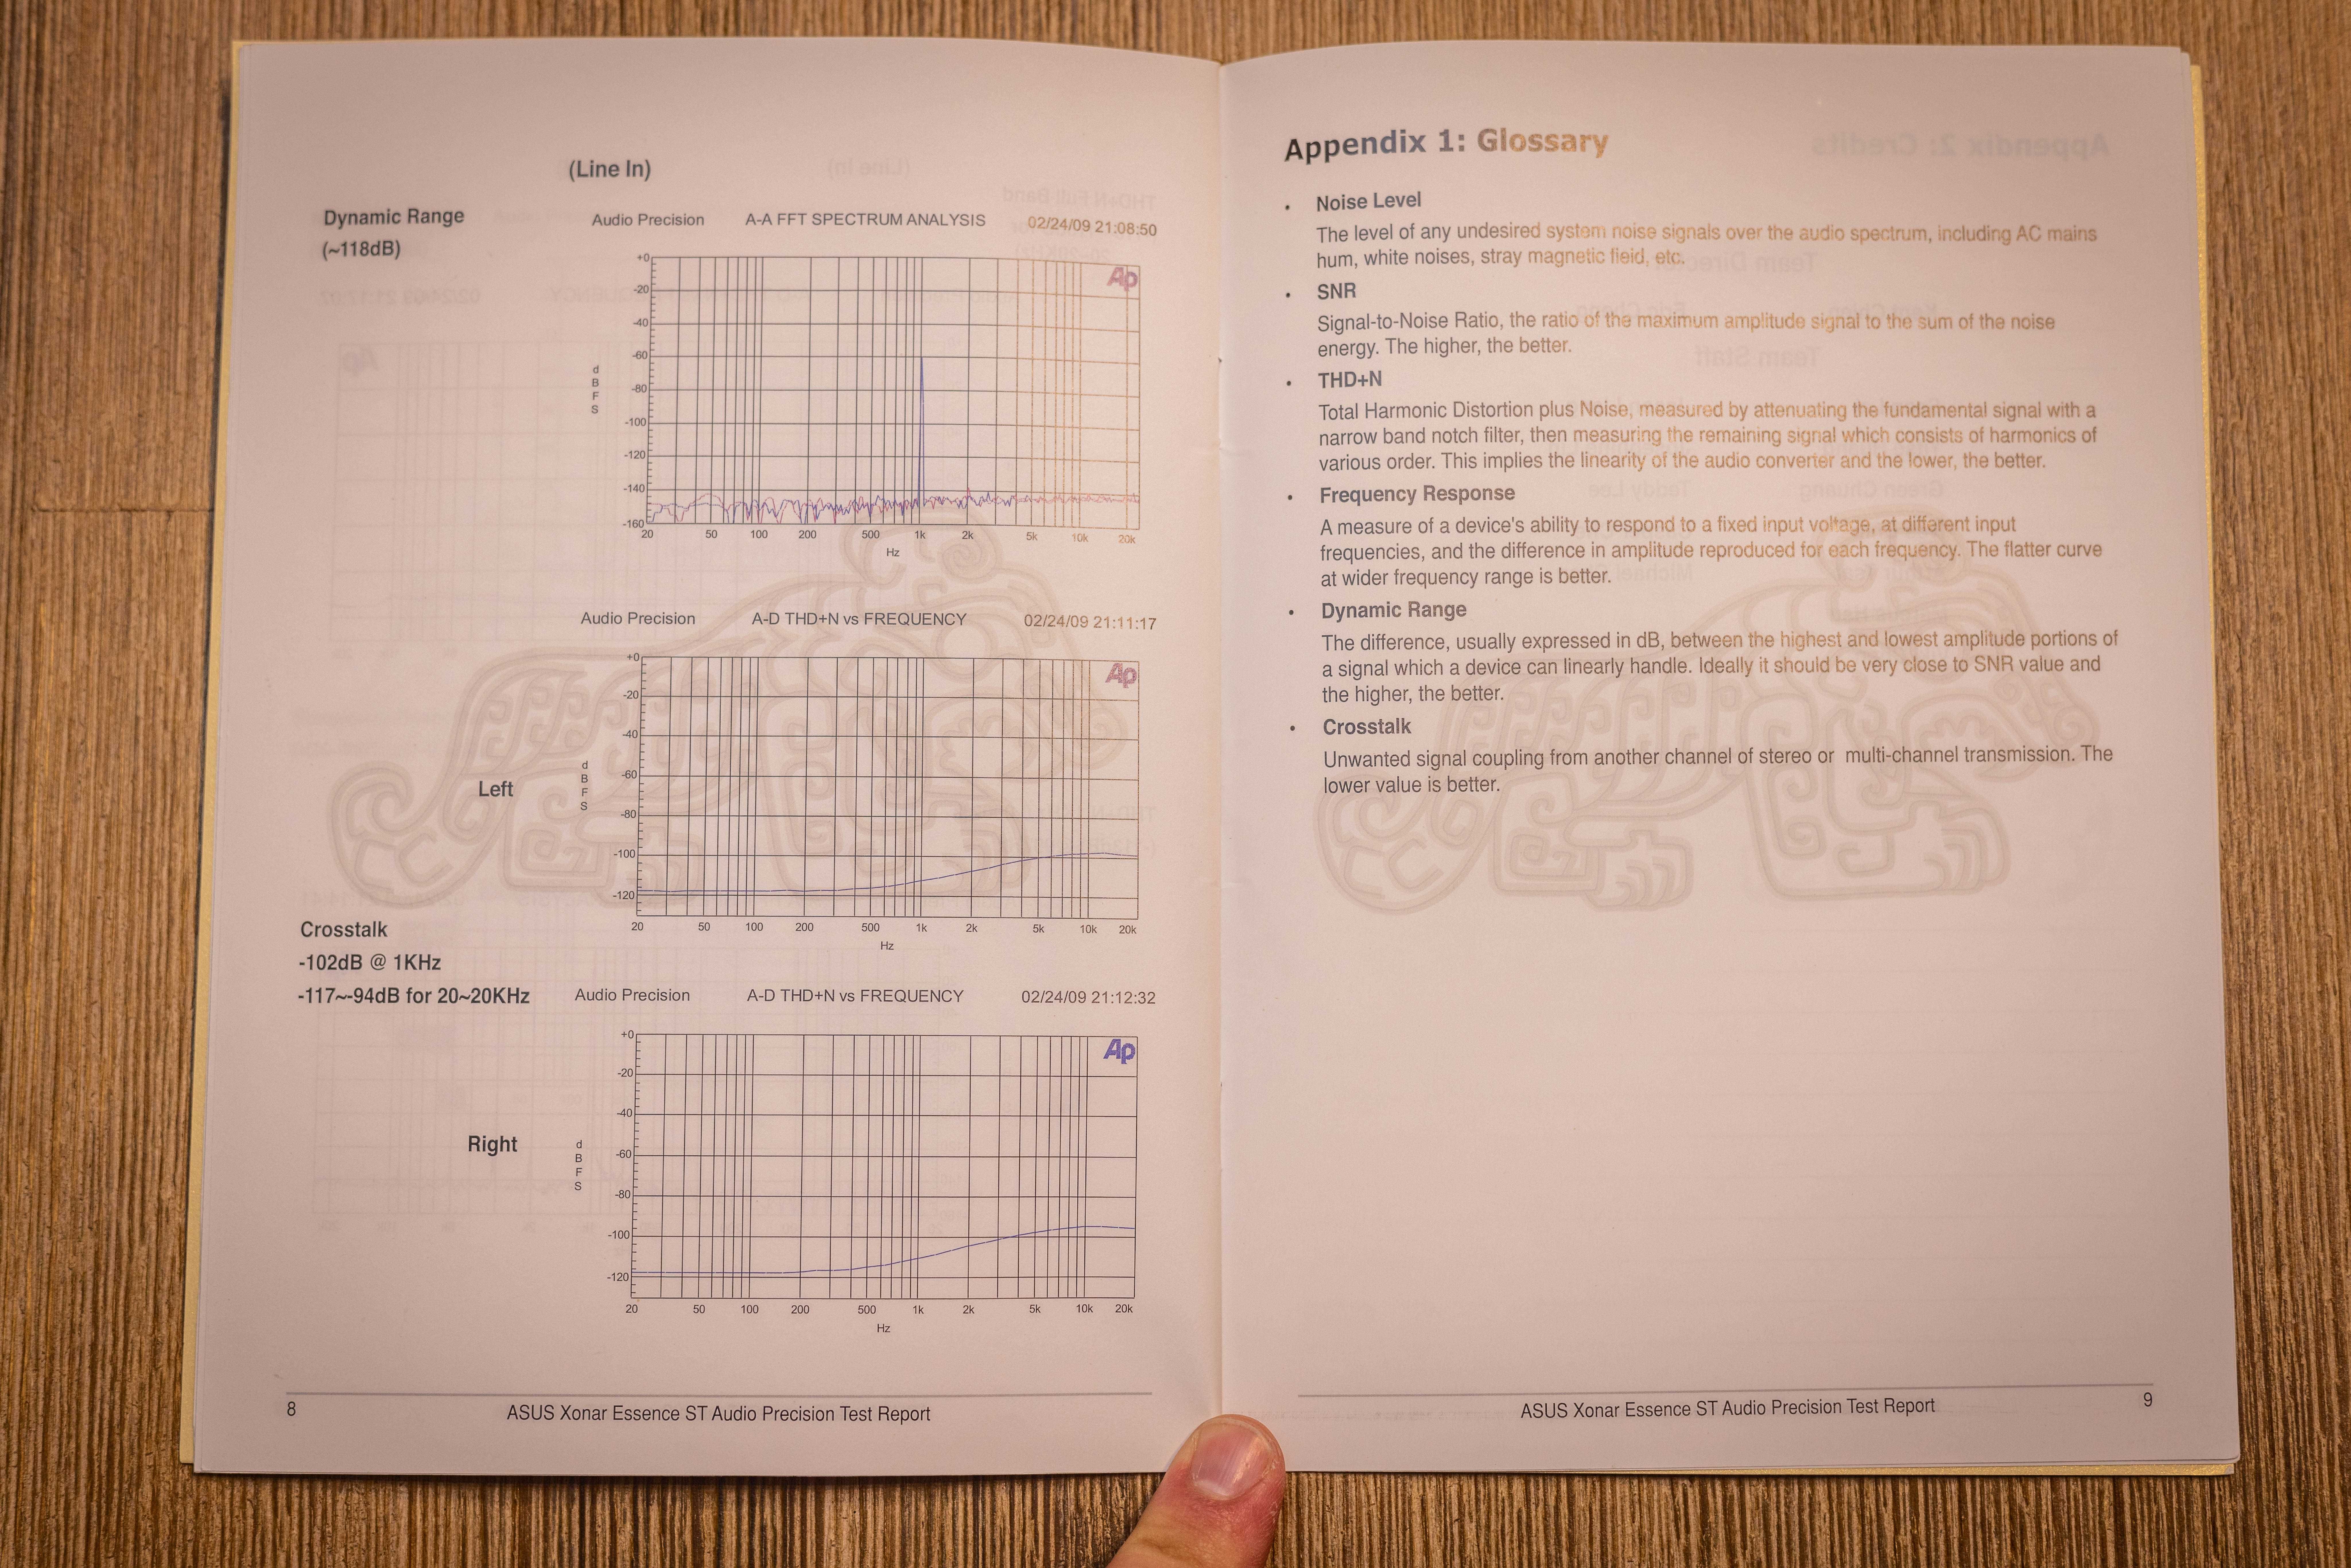 (Line In)
Dynamic Range
(~118dB)
Audio Precision A-A FFT SPECTRUM ANALYSIS 02/24/09 21:08:50
Ap
+0
-20
-40
-60
-80
-100
-120
-140
-160
d
B
F
S
20 50 100 200 500 1k 2k 5k 10k 20k
Hz
Audio Precision A-D THD+N vs FREQUENCY 02/24/09 21:11:17
Ap
+0
-20
-40
-60
-80
-100
-120
Left
d
B
F
S
20 50 100 200 500 1k 2k 5k 10k 20k
Hz
Crosstalk
-102dB @ 1KHz
-117~-94dB for 20~20KHz
Audio Precision A-D THD+N vs FREQUENCY 02/24/09 21:12:32
Ap
+0
-20
-40
-60
-80
-100
-120
Right
d
B
F
S
20 50 100 200 500 1k 2k 5k 10k 20k
Hz
8 ASUS Xonar Essence ST Audio Precision Test Report
Appendix 1: Glossary
• Noise Level
The level of any undesired system noise signals over the audio spectrum, including AC mains
hum, white noises, stray magnetic field, etc.
• SNR
Signal-to-Noise Ratio, the ratio of the maximum amplitude signal to the sum of the noise
energy. The higher, the better.
• THD+N
Total Harmonic Distortion plus Noise, measured by attenuating the fundamental signal with a
narrow band notch filter, then measuring the remaining signal which consists of harmonics of
various order. This implies the linearity of the audio converter and the lower, the better.
• Frequency Response
A measure of a device's ability to respond to a fixed input voltage, at different input
frequencies, and the difference in amplitude reproduced for each frequency. The flatter curve
at wider frequency range is better.
• Dynamic Range
The difference, usually expressed in dB, between the highest and lowest amplitude portions of
a signal which a device can linearly handle. Ideally it should be very close to SNR value and
the higher, the better.
• Crosstalk
Unwanted signal coupling from another channel of stereo or multi-channel transmission. The
lower value is better.
ASUS Xonar Essence ST Audio Precision Test Report 9